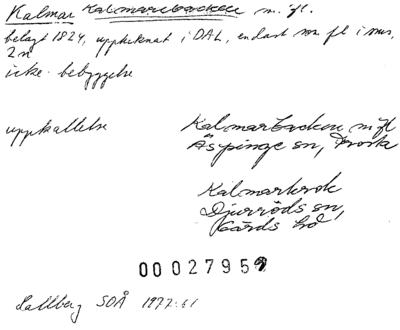 Kalmar Kalmarebacken m. fl.
belagt 1824, uppteknat i DAL, endast som fl i sms,
2 n
icke-bebyggelse
uppkallelse
Kalmarbacken m fl
Äspinge sn, Frosta
Kalmarkrok
Djurröds sn,
Gärds hd
00027959
Hallberg SOÅ 1977:61